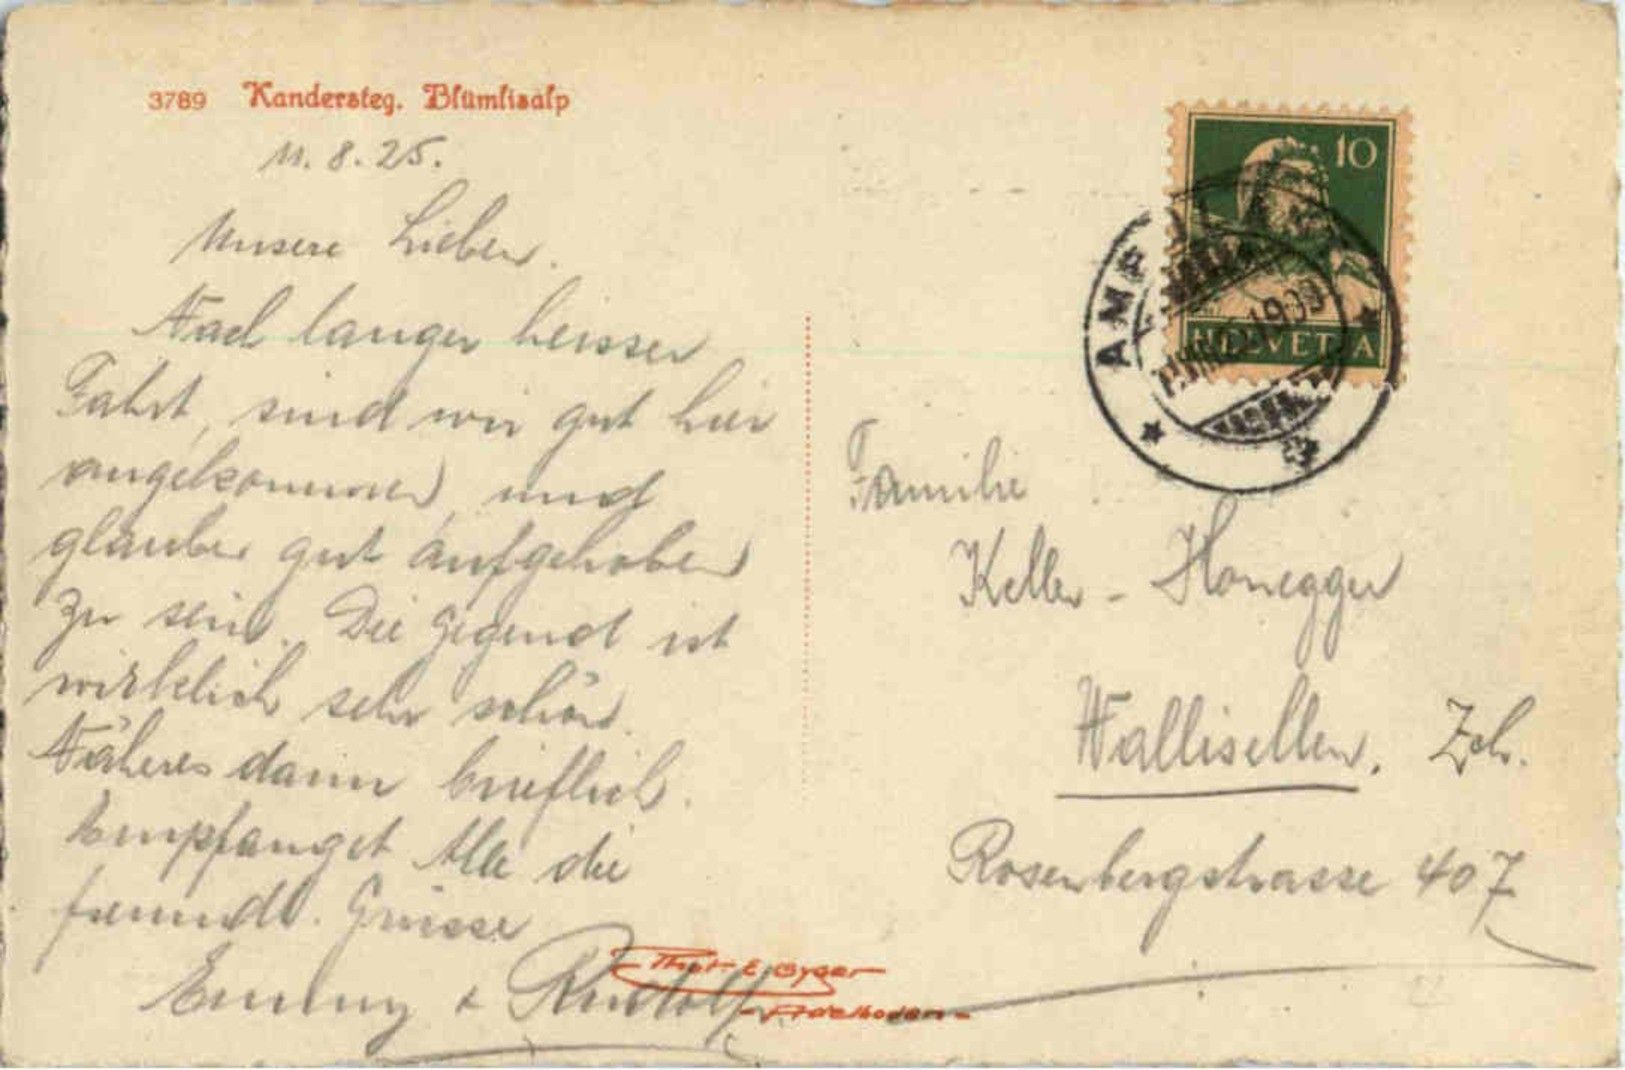 3789 Kandersteg. Blümlisalp
11. 8. 25.
Unsere Lieben.
Nach langer heisser
Fahrt, sind wir gut hier
angekommen, und
glauben gut aufgehoben
zu sein. Die Gegend ist
wirklich sehr schön.
Näheres dann brieflich.
Empfanget Alle die
freundl. Grüsse
Emmy & Rudolf
Phot. E. Gyger
- Adelboden -
10
HELVETIA
Familie
Keller - Honegger
Wallisellen. Zch.
Rosenbergstrasse 407